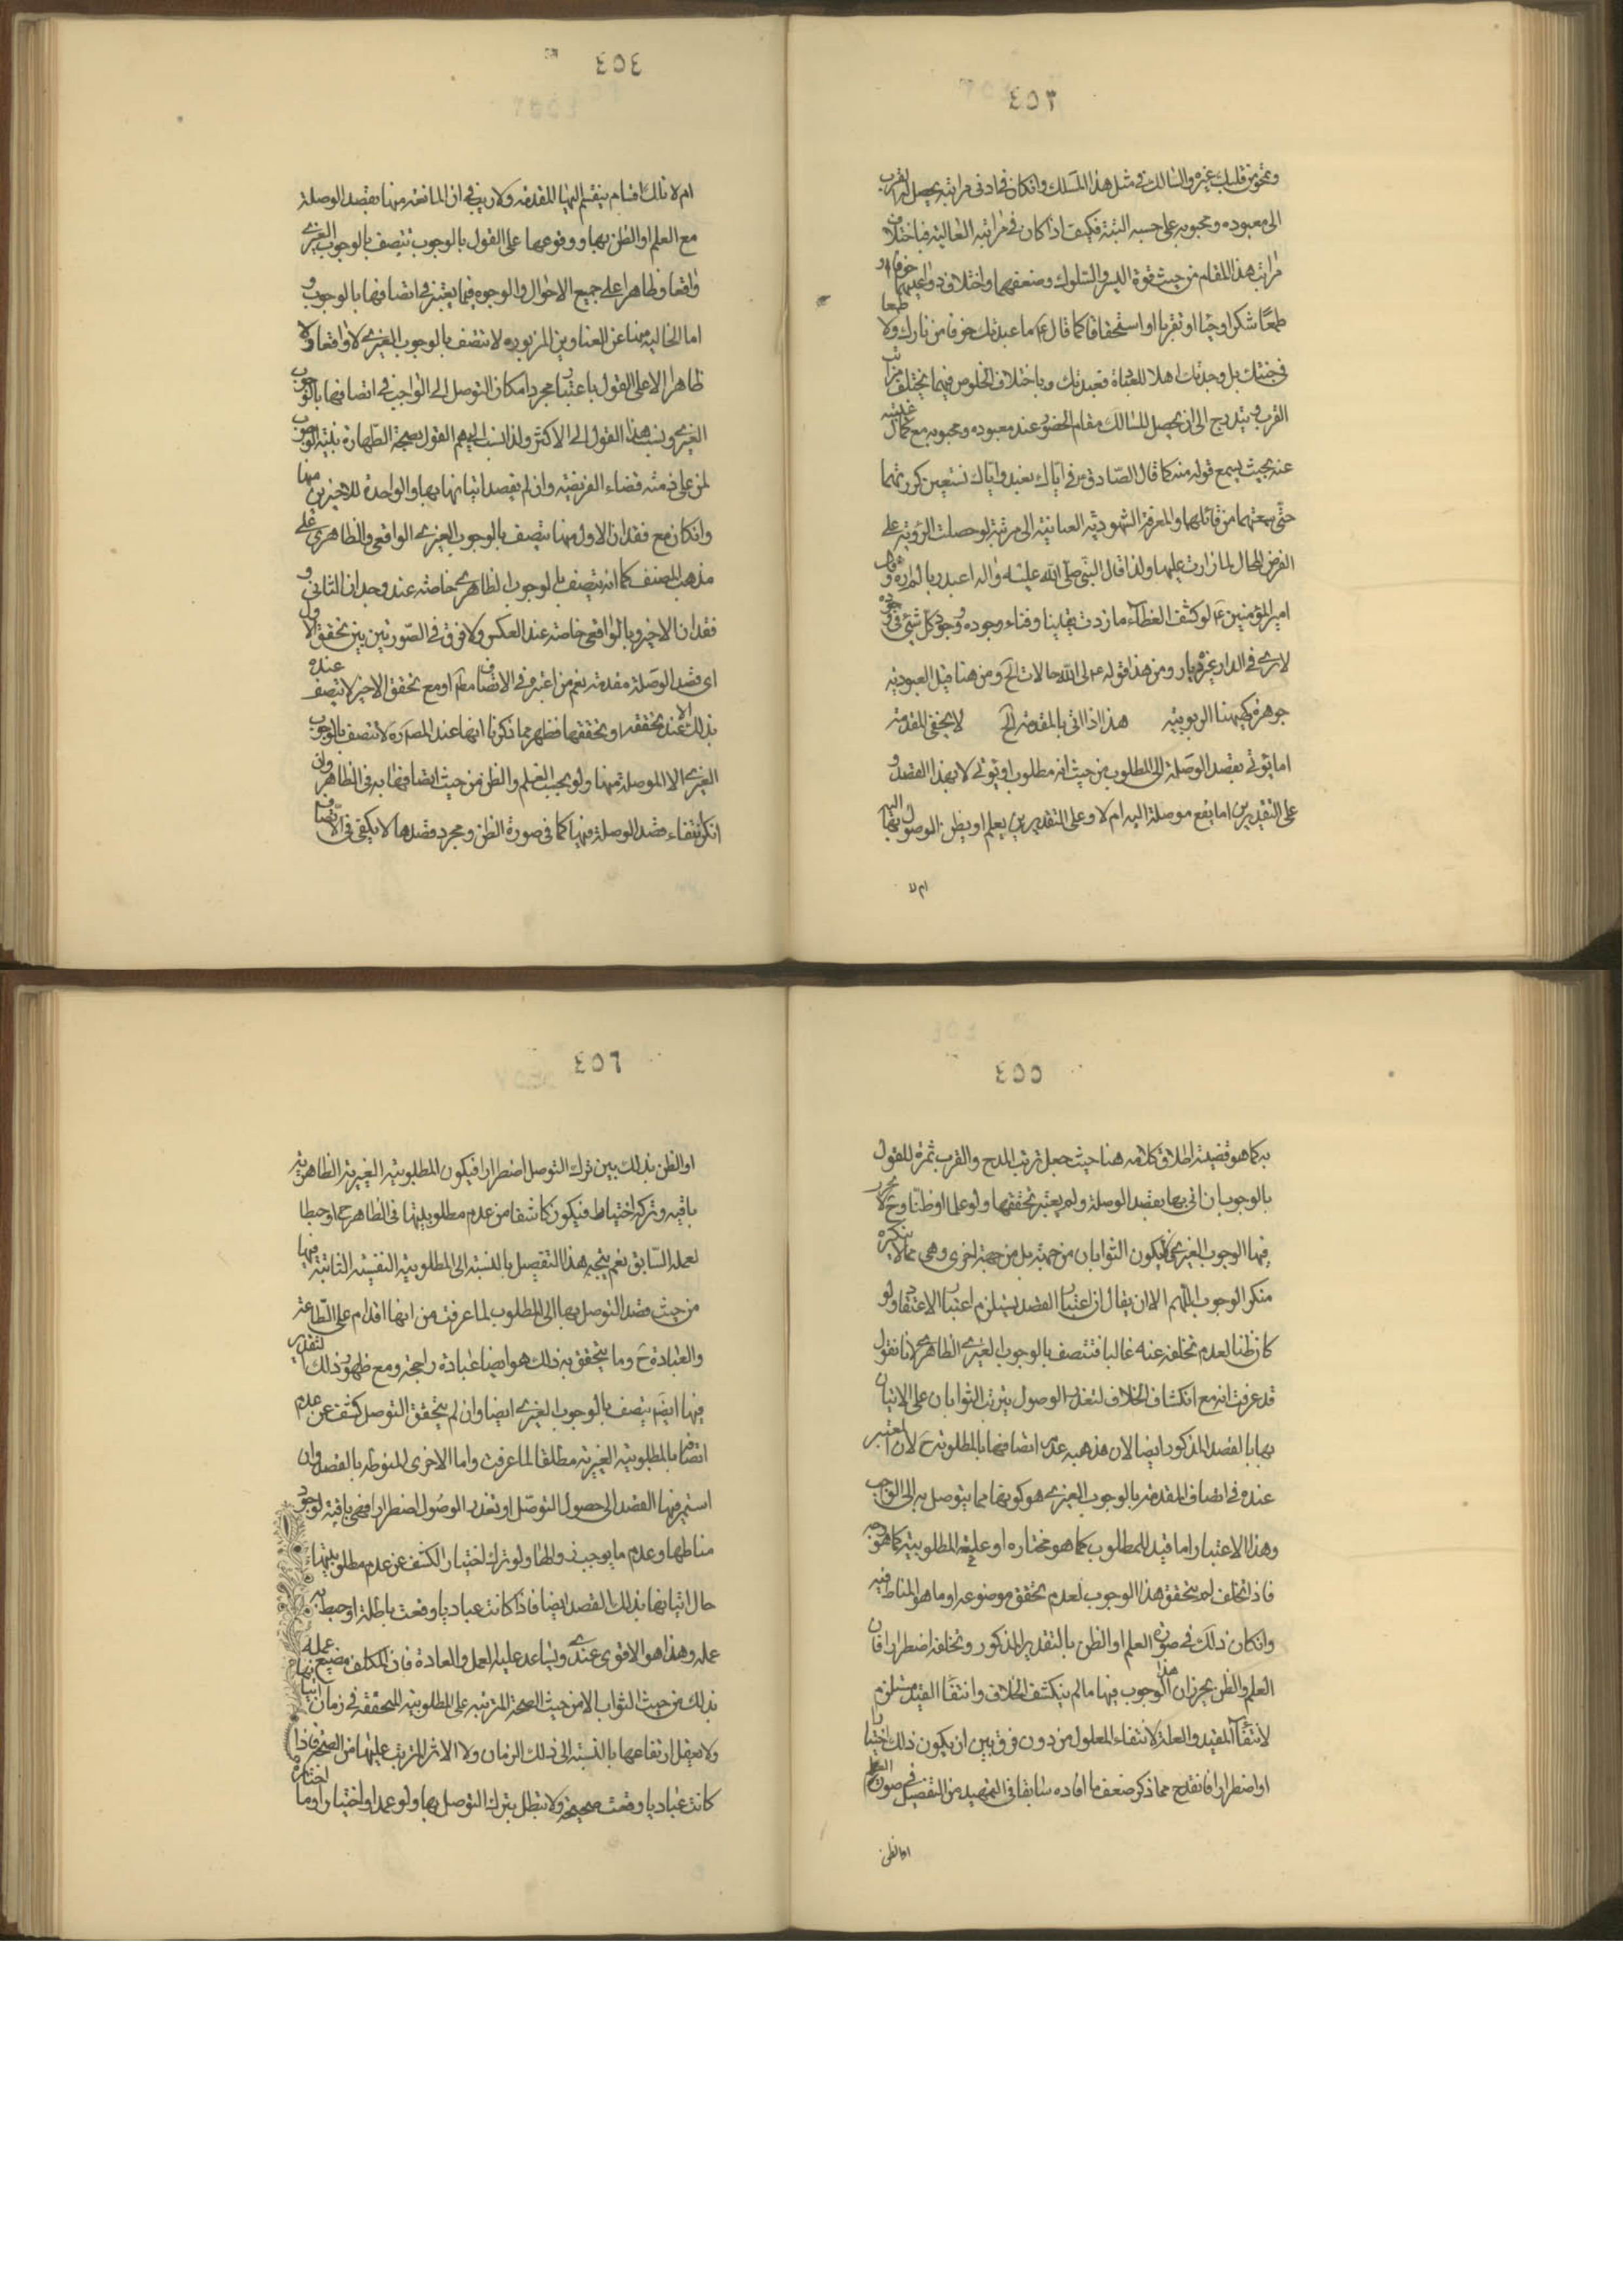 ٤٥٣
ونحو من قلب غيره والسالك في مثل هذا المسلك وانكان في ادنى مراتبه يحصل له القرب
الى معبوده ومحبوبه على حسبه البتة فكيف اذا كان في مراتبه العالية فباختلاف
مراتب هذا المقام من حيث قوة السير والسلوك وضعفهما واختلاف دواعيهما خوفا او
طمعًا شكرا وحبّا او تقربا او استحقاقا كما قال ع ما عبدتك خوفا من نارك ولا طمعا
في جنتك بل وجدتك اهلا للعبادة فعبدتك وباختلاف الخلوص فيهما يختلف مراتب
القرب ويتدرج الى ان يحصل للسالك مقام الحضور عند معبوده ومحبوبه مع كمال غيبته
عنه بحيث يسمع قوله منه كما قال الصادق ع في اياك نعبد واياك نستعين كررتهما
حتى سمعتهما من قائلهما والمعرفة الشهودية العيانية الى مرتبة لو حصلت الرؤية على
الفرض المحال لما زادت عليها ولذا قال النبي صلى الله عليه واله اعبد ربا لم اره وقال
امير المؤمنين ع لو كشف الغطاء ما زددت يقينا وفناء وجوده ووجود كل شئ في وجوده
لا يرى في الدار غيره ديار ومن هذا قوله ع لى مع الله حالات الخ ومن هنا قيل العبودية
جوهرة كنهها الربوبية هذا اذا اتى بالمقدمة الخ لا يخفى المقدمة
اما يؤتى بقصد الوصلة الى المطلوب من حيث انه مطلوب او يؤتى لا بهذا القصد و
على التقديرين اما يقع موصلة اليه ام لا وعلى التقديرين يعلم او يظن الوصول بها اليه
ام لا
٤٥٤
ام لا تلك اقسام ينقسم اليها المقدمة ولا ريب في ان المأتية منها بقصد الوصلة
مع العلم او الظن بها ووقوعها على القول بالوجوب تتصف بالوجوب الغيرى
واقعا وظاهرا على جميع الاحوال والوجوه فيما يعتبر في اتصافها بالوجوب و
اما الخالية منها عن العناوين المزبورة لا تتصف بالوجوب الغيرى لا واقعا ولا
ظاهرا الا على القول باعتبار مجرد امكان التوصل الى الواجب في اتصافها بالوجوب
الغيرى ونسب هذا القول الى الاكثر ولذا نسب اليهم القول بصحة الطهارة بنية الوجوب
لمن على ذمته قضاء الفريضة وان لم يقصد اتيانها بها والواجدة للاخيرين منها
وانكان مع فقدان الاول منها يتصف بالوجوب الغيرى الواقعى والظاهرى على
مذهب المصنف كما انه يتصف بالوجوب الظاهرى خاصة عند وجدان الثانى و
فقدان الاخير وبالواقعى خاصة عند العكس ولا فرق في الصورتين بين تحقق الاول
اى قصد الوصلة مقدمة نعم من اعتبره في الاتصاف معه او مع تحقق الاخير لا يتصف عنده
بذلك الا عند تحققه او تحققها فظهر مما ذكرنا انها عند المص ره لا تتصف بالوجوب
الغيرى الا الموصلة منها ولو بحسب العلم والظن من حيث اتصافها به في الظاهر وان
انكن انتفاء قصد الوصلة فيها كما في صورة الظن ومجرد قصدها لا يكفى في الاتصاف
٤٥٥
به كما هو قضية اطلاق كلامه هنا حيث جعل ترتب المدح والقرب ثمرة للقول
بالوجوب ان اتى بها بقصد الوصلة ولم يعتبر تحققها ولو علما او ظنا وح لا يحرز
فيها الوجوب الغيرى كى يكون الثوابان من جهته بل من جهة اخرى وهى مما لا ينكره
منكر الوجوب اللهم الا ان يقال ان اعتبار القصد يستلزم اعتبار الاعتقاد ولو
كان ظنا لعدم تخلفه عنه غالبا فتتصف بالوجوب الغيرى الظاهرى لانا نقول
قد عرفت انه مع انكشاف الخلاف لتعذر الوصول يترتب الثوابان على الاتيان
بها بالقصد المذكور ايضا لان مذهبه عدم اتصافها بالمطلوبية ح لان المعتبر
عنده في اتصاف المقدمة بالوجوب الغيرى هو كونها مما يتوصل به الى الواجب
وهذا الاعتبار اما قيد للمطلوب كما هو مختاره او علة للمطلوبية كما هو وجه
فاذا تخلف لم يتحقق هذا الوجوب لعدم تحقق موضوعه او ما هو المناط فيه
وانكان ذلك في صورة العلم او الظن بالتقدير المذكور وتخلفه اضطرارا فان
العلم والظن يحرزان هذا الوجوب فيها ما لم ينكشف الخلاف وانتفاء القيد مستلزم
لانتفاء المقيد والعلة لانتفاء المعلول من دون فرق بين ان يكون ذلك اختيارا
او اضطرارا فانقدح مما ذكر ضعف ما افاده سابقا في التمهيد من التفصيل في صورة العلم
او الظن
٤٥٦
او الظن بذلك بين ترك التوصل اضطرارا فيكون المطلوبية الغيرية الظاهرية
باقية وتركه اختيارا فيكون كاشفا من عدم مطلوبيتها في الظاهر ح او حبطا
لعمله السابق نعم يتجه هذا التفصيل بالنسبة الى المطلوبية النفسية الثابتة فيها
من حيث قصد التوصل بها الى المطلوب لما عرفت من انها اقدام على الطاعة
والعبادة ح وما يتحقق به ذلك هو ايضا عبادة راجحة ومع ظهور ذلك التقدير
فيها ايضا يتصف بالوجوب الغيرى ايضا وان لم يتحقق التوصل كشف عن عدم
اتصافها بالمطلوبية الغيرية مطلقا لما عرفت واما الاخرى المنوطة بالقصد وان
استمر فيها القصد الى حصول التوصل او تعذر الوصول اضطرارا فهى باقية لوجود
مناطها وعدم ما يوجب زوالها ولو ترك اختيارا لكشف عن عدم مطلوبيتها
حال اتيانها بذلك القصد ايضا فاذا كانت عباديا وقعت باطلة او حبط به
عمله وهذا هو الاقوى عندى ويساعد عليه العمل والعادة فان المكلف مضيع عمله
بذلك من حيث الثواب لا من حيث الصحة المترتبة على المطلوبية المتحققة في زمان اتيانها
ولا يعقل ارتفاعها بالنسبة الى ذلك الزمان ولا الاثر المترتب عليها من الصحة فاذا
كانت عباديا وقعت صحيحة ولا تبطل بترك التوصل بها ولو عمدا واختيارا وما اختاره